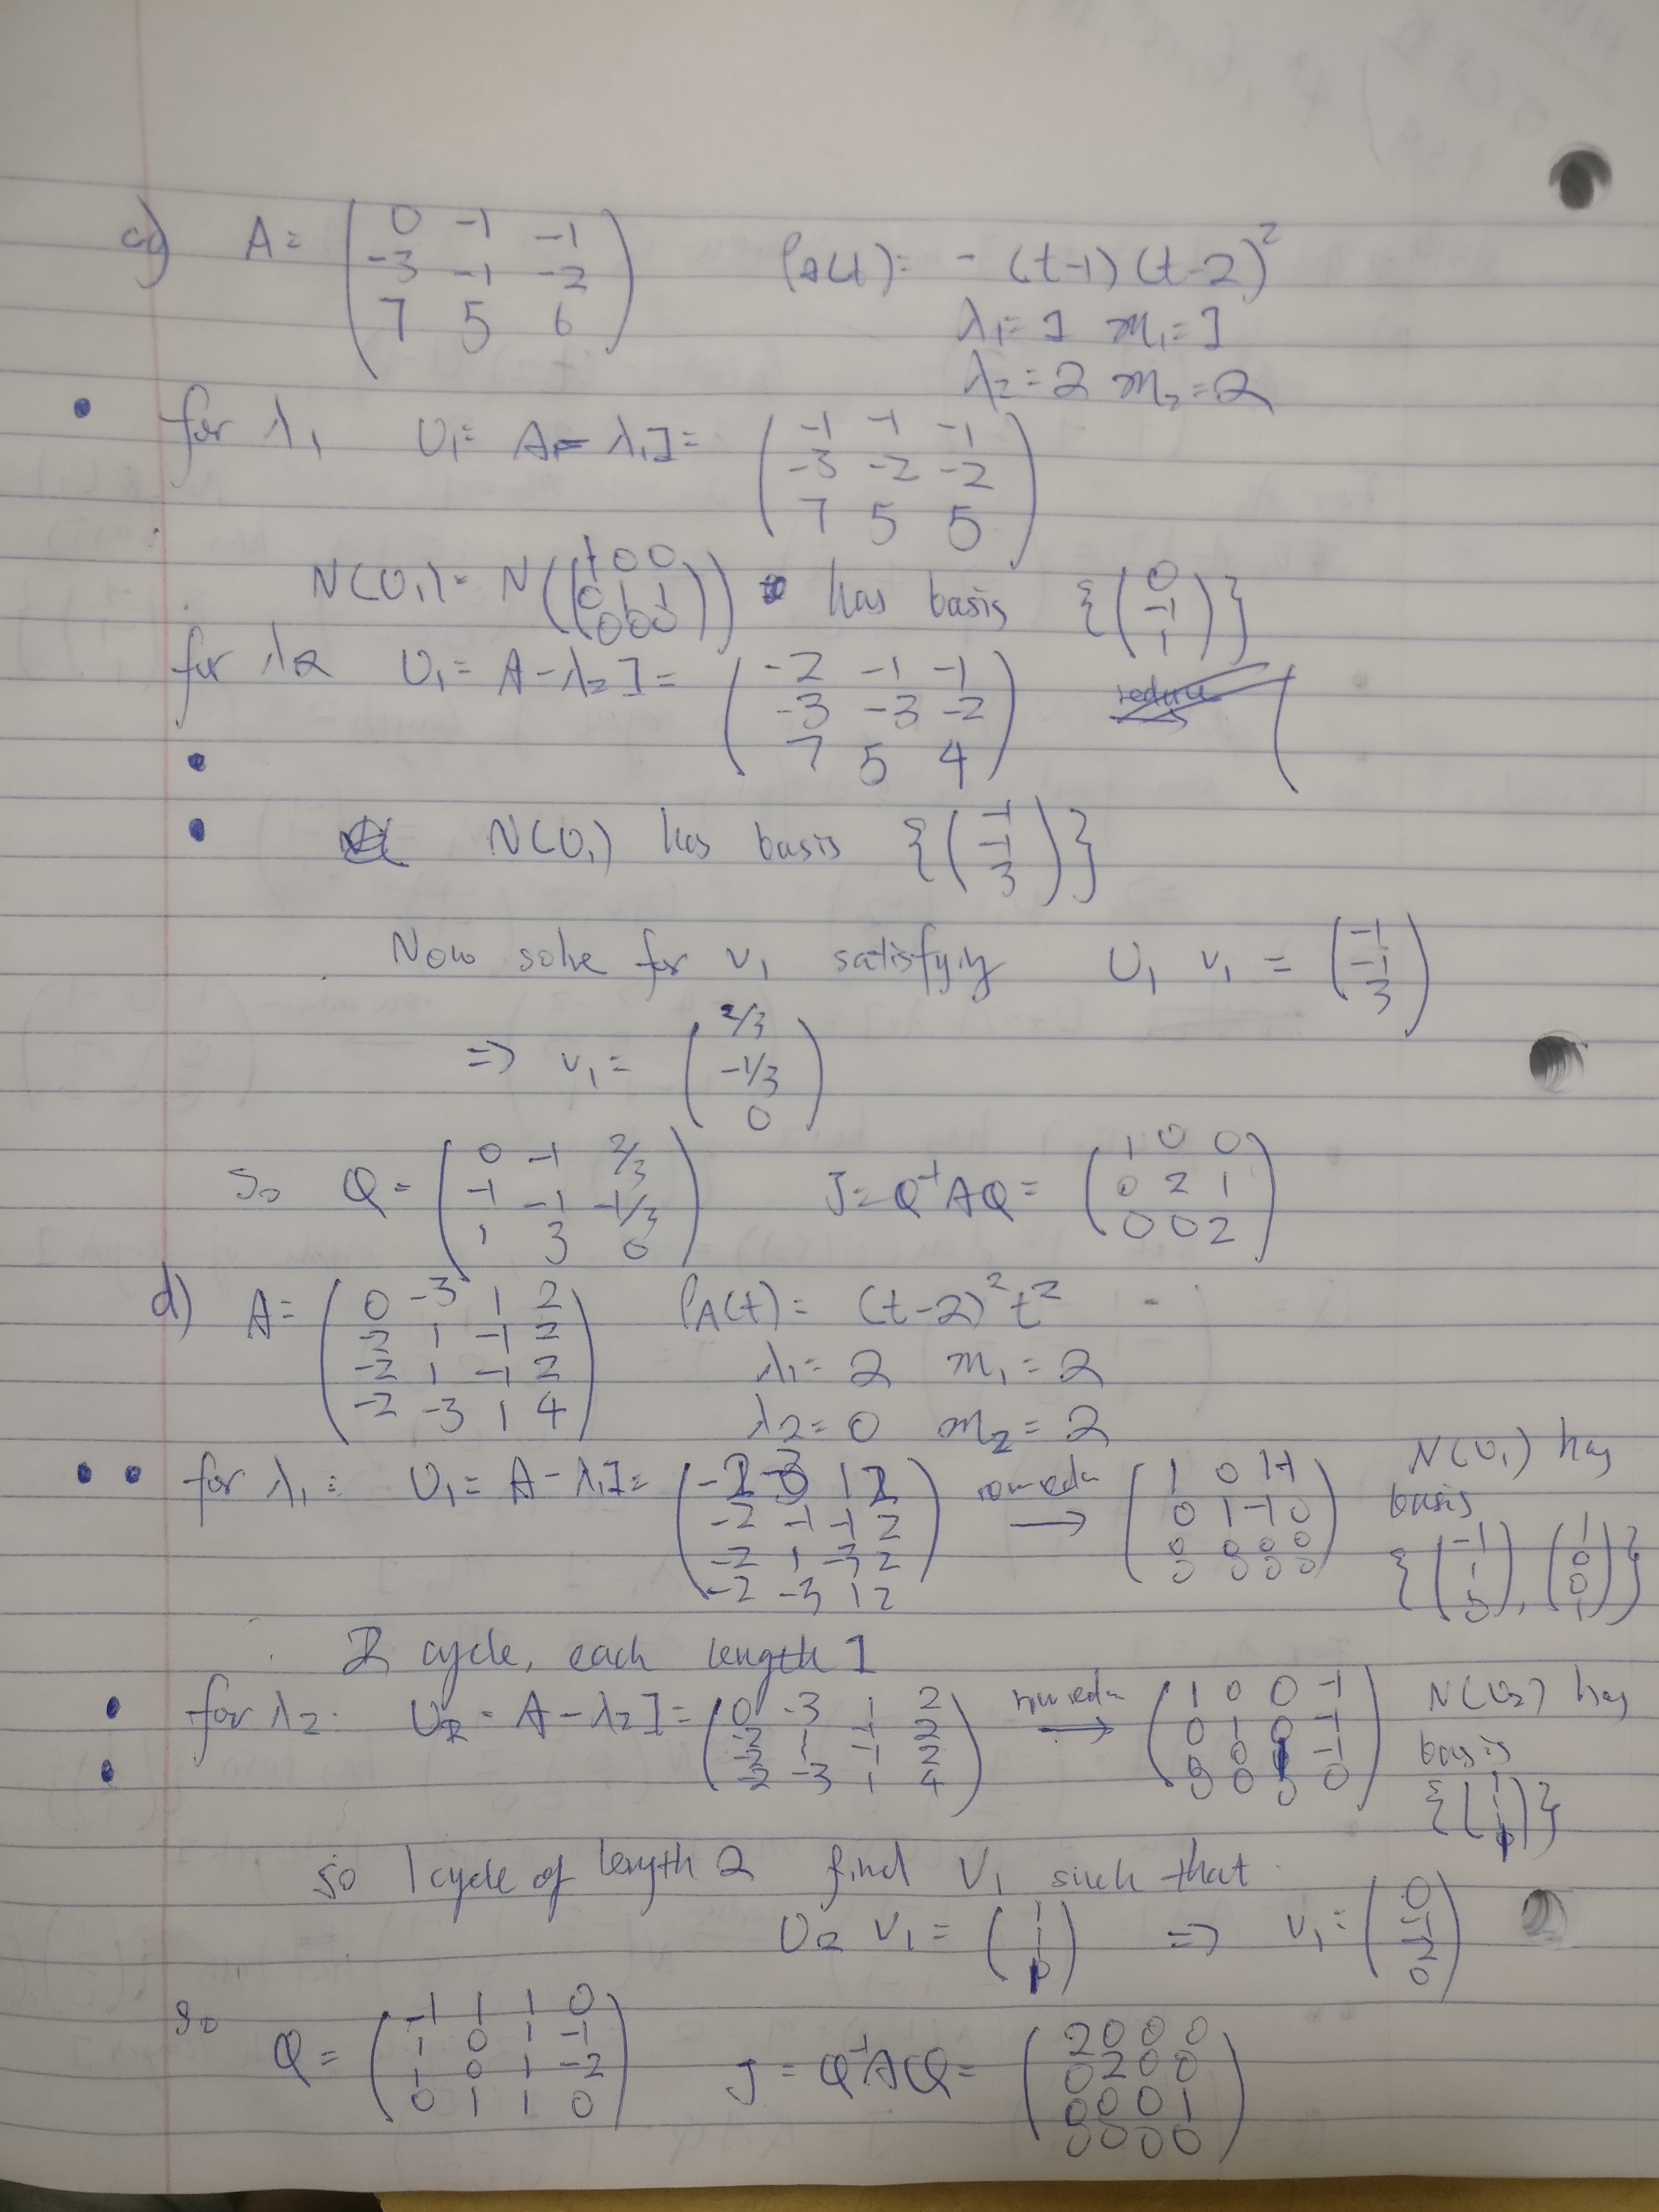 c) A = ( 0 -1 -1 ; -3 -1 -2 ; 7 5 6 ) PA(t) = - (t-1) (t-2)²
λ1 = 1 m1 = 1
λ2 = 2 m2 = 2
for λ1 U1 = A - λ1I = ( -1 -1 -1 ; -3 -2 -2 ; 7 5 5 )
N(U1) = N(( 1 0 0 ; 0 1 1 ; 0 0 0 )) has basis {( 0 ; -1 ; 1 )}
for λ2 U1 = A - λ2 I = ( -2 -1 -1 ; -3 -3 -2 ; 7 5 4 ) reduce → (
N(U1) has basis {( -1 ; -1 ; 3 )}
Now solve for v1 satisfying U1 v1 = ( -1 ; -1 ; 3 )
=> v1 = ( 2/3 ; -1/3 ; 0 )
So Q = ( 0 -1 2/3 ; -1 -1 -1/3 ; 1 3 0 ) J = Q⁻¹AQ = ( 1 0 0 ; 0 2 1 ; 0 0 2 )
d) A = ( 0 -3 1 2 ; -2 1 -1 2 ; -2 1 -1 2 ; -2 -3 1 4 ) PA(t) = (t-2)² t²
λ1 = 2 m1 = 2
λ2 = 0 m2 = 2
for λ1 : U1 = A - λ1I = ( -2 -3 1 2 ; -2 -1 -1 2 ; -2 1 -3 2 ; -2 -3 1 2 ) row redn → ( 1 0 1 -1 ; 0 1 -1 0 ; 0 0 0 0 ; 0 0 0 0 ) N(U1) has
basis
{( -1 ; 1 ; 1 ; 0 ), ( 1 ; 0 ; 0 ; 1 )}
2 cycle, each length 1
for λ2 . U2 = A - λ2I = ( 0 -3 1 2 ; -2 1 -1 2 ; -2 1 -1 2 ; -2 -3 1 4 ) row redn → ( 1 0 0 -1 ; 0 1 0 -1 ; 0 0 1 -1 ; 0 0 0 0 ) N(U2) has
basis
{( 1 ; 1 ; 1 ; 1 )}
so 1 cycle of length 2 find v1 such that
U2 v1 = ( 1 ; 1 ; 1 ; 1 ) => v1 = ( 0 ; -1 ; -2 ; 0 )
So
Q = ( -1 1 1 0 ; 1 0 1 -1 ; 1 0 1 -2 ; 0 1 1 0 ) J = Q⁻¹AQ = ( 2 0 0 0 ; 0 2 0 0 ; 0 0 0 1 ; 0 0 0 0 )